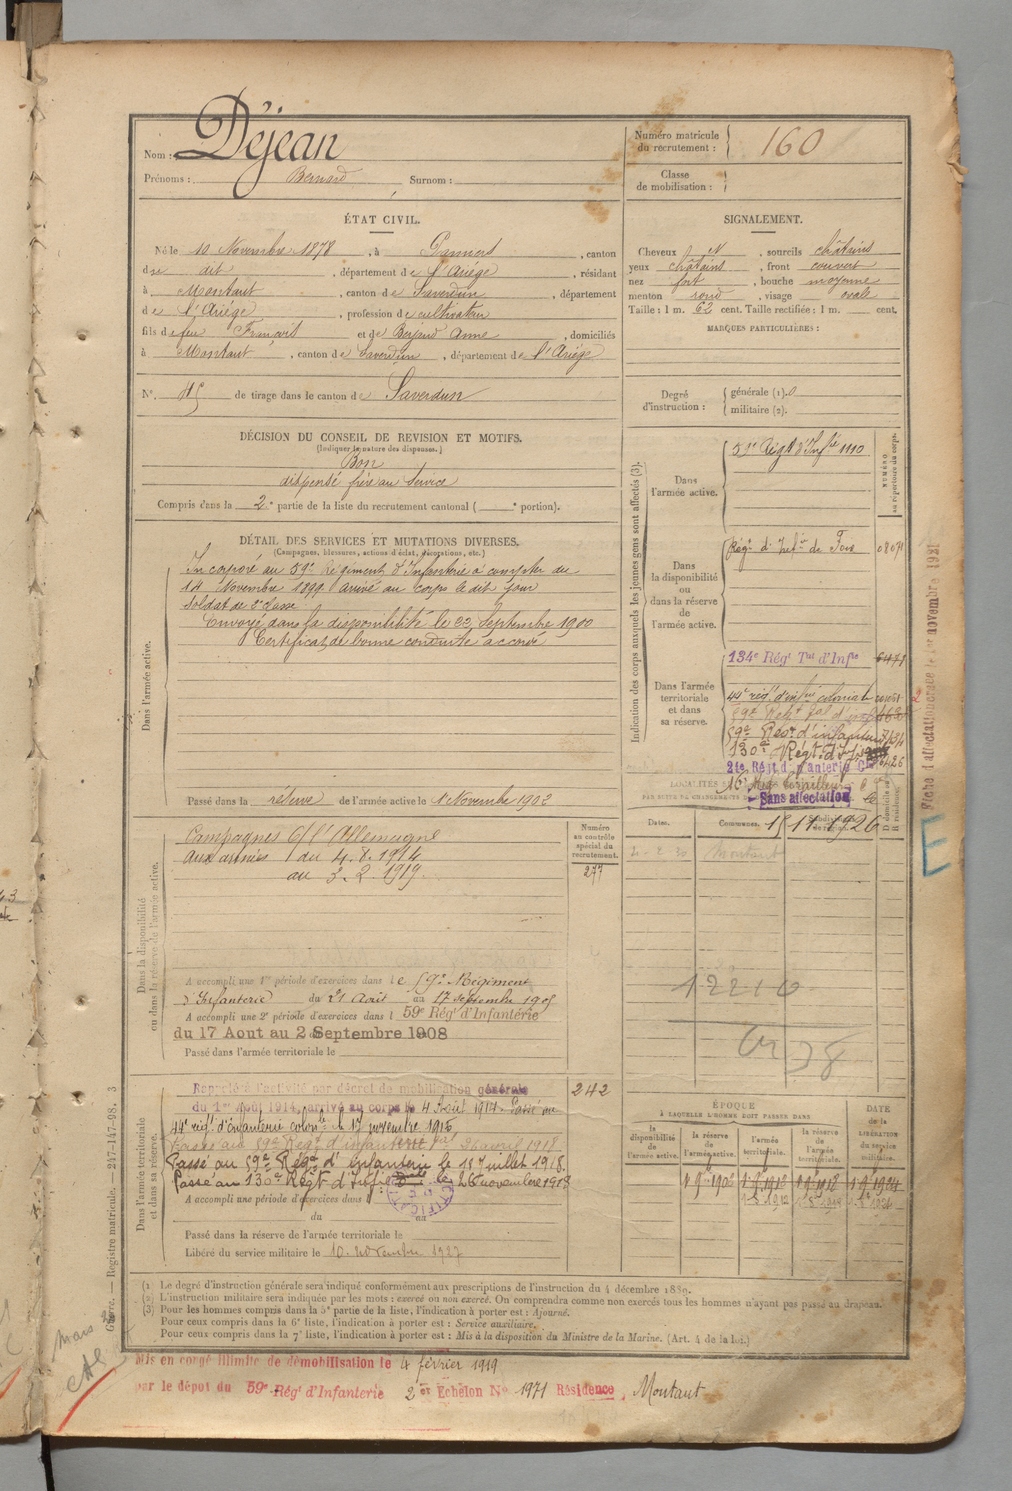 Nom : Déjean
Prénoms : Bernard Surnom :
Numéro matricule du recrutement : 160
Classe de mobilisation :
ÉTAT CIVIL.
Né le 10 Novembre 1878, à Pamiers, canton
du dit, département de l'Ariège, résidant
à Montaut, canton de Saverdun, département
de l'Ariège, profession de cultivateur
fils de feu François et de Anne, domiciliés
à Montaut, canton de Saverdun, département de l'Ariège
N° 45 de tirage dans le canton de Saverdun
SIGNALEMENT.
Cheveux N, sourcils châtains
yeux châtains, front couvert
nez fort, bouche moyenne
menton rond, visage ovale
Taille : 1 m. 62 cent. Taille rectifiée : 1 m. cent.
MARQUES PARTICULIÈRES :
Degré d'instruction : générale (1). 0
militaire (2).
DÉCISION DU CONSEIL DE REVISION ET MOTIFS.
(Indiquer la nature des dispenses.)
Bon
dispensé frère au service
Compris dans la 2e partie de la liste du recrutement cantonal ( e portion).
DÉTAIL DES SERVICES ET MUTATIONS DIVERSES.
(Campagnes, blessures, actions d'éclat, décorations, etc.)
Dans l'armée active.
Incorporé au 59e Régiment d'Infanterie à compter du
14 Novembre 1899 arrivé au corps le dit jour
soldat de 2e classe.
Envoyé dans la disponibilité le 22 Septembre 1900
Certificat de bonne conduite accordé
Passé dans la réserve de l'armée active le 1 Novembre 1902
Indication des corps auxquels les jeunes gens sont affectés (3).
NUMÉRO au répertoire du corps.
Dans l'armée active.
59e Régt d'Infie 1110
Dans la disponibilité ou dans la réserve de l'armée active.
Régt d'Infie de Foix
Dans l'armée territoriale et dans sa réserve.
134e Régt Tal d'Infie
44e rég. d'infie coloniale
59e Régt Tal d'inf
59e Régt d'infanterie
130e Régt d'Inf
Sans affectation
15 11 1926
Fiche d'affectation novembre 1921
Dates. Communes.
D domicile ou R résidence.
Montaut
Dans la disponibilité ou dans la réserve de l'armée active.
Campagnes C/ l'Allemagne
aux armées du 4.8.1914
au 3.2.1919.
Numéro au contrôle spécial du recrutement.
277
A accompli une 1re période d'exercices dans le 59e Régiment
d'Infanterie du 21 Août au 17 septembre 1905
A accompli une 2e période d'exercices dans l 59e Régt d'Infanterie
du 17 Aout au 2 Septembre 1908
Passé dans l'armée territoriale le
12210
Dans l'armée territoriale et dans sa réserve.
Rappelé à l'activité par décret de mobilisation générale
du 1er Août 1914, arrivé au corps le 4 Août 1914. Passé au
44e régt d'infanterie coloniale le 17 novembre 1916
Passé au 59e Régt d'infanterie Tal 26 avril 1918
Passé au 59e Régt d'Infanterie le 18 Juillet 1918.
Passé au 130e Régt d'Infie le 26 novembre 1918
A accompli une période d'exercices dans l
du au
Passé dans la réserve de l'armée territoriale le
Libéré du service militaire le 10 novembre 1927
242
ÉPOQUE
À LAQUELLE L'HOMME DOIT PASSER DANS
la disponibilité de l'armée active.
la réserve de l'armée active.
l'armée territoriale.
la réserve de l'armée territoriale.
DATE de la LIBÉRATION du service militaire.
1 9bre 1902
(1) Le degré d'instruction générale sera indiqué conformément aux prescriptions de l'instruction du 4 décembre 1889.
(2) L'instruction militaire sera indiquée par les mots : exercé ou non exercé. On comprendra comme non exercés tous les hommes n'ayant pas passé au drapeau.
(3) Pour les hommes compris dans la 5e partie de la liste, l'indication à porter est : Ajourné.
Pour ceux compris dans la 6e liste, l'indication à porter est : Service auxiliaire.
Pour ceux compris dans la 7e liste, l'indication à porter est : Mis à la disposition du Ministre de la Marine. (Art. 4 de la loi.)
Guerre. — Registre matricule. — 247-147-98. 3
Mis en congé illimité de démobilisation le 4 février 1919
par le dépôt du 59e Régt d'Infanterie 2e Echelon No 1971 Résidence, Montaut